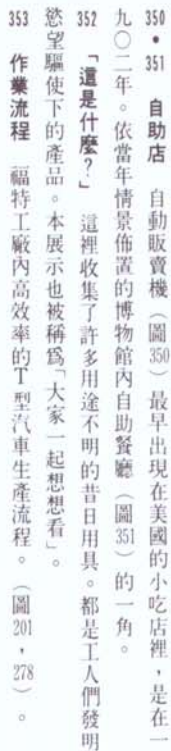 350•351 自助店 自動販賣機（圖350）最早出現在美國的小吃店裡，是在一
九○二年。依當年情景佈置的博物館內自助餐廳（圖351）的一角。
352 「這是什麼？」 這裡收集了許多用途不明的昔日用具。都是工人們發明
慾望驅使下的產品。本展示也被稱爲「大家一起想想看」。
353 作業流程 福特工廠內高效率的T型汽車生產流程。（圖201，278）。